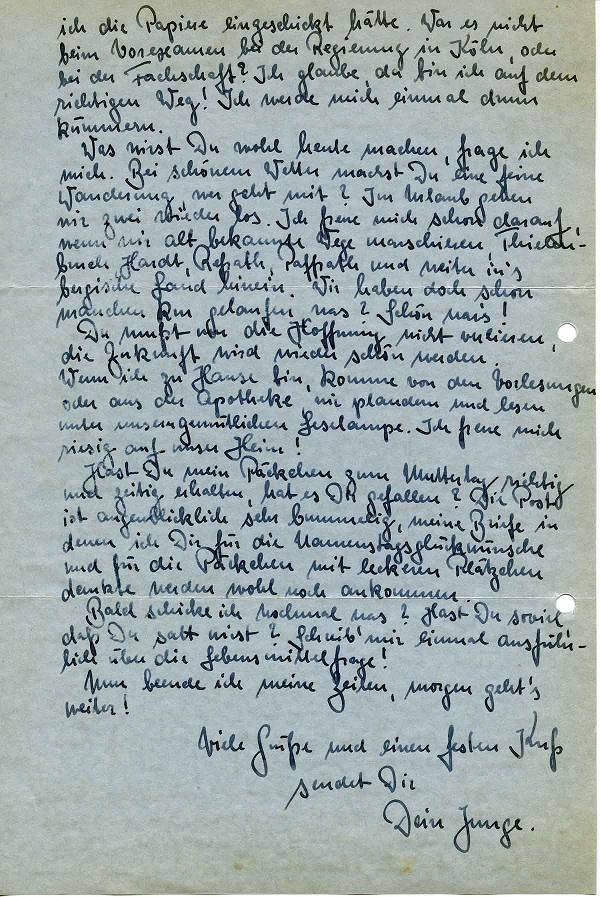 ich die Papiere eingeschickt hätte. War es nicht
beim Vorexamen bei der Regierung in Köln, oder
bei der Fachschaft? Ich glaube, da bin ich auf dem
richtigen Weg! Ich werde mich einmal drum
kümmern.
Was wirst Du wohl heute machen, frage ich
mich. Bei schönem Wetter machst Du eine feine
Wanderung, wer geht mit? Im Urlaub gehen
wir zwei wieder los. Ich freue mich schon darauf,
wenn wir alt bekannte Wege marschieren, Thielen-
bruch Hardt, Refrath, Paffrath und weiter in's
bergische Land hinein. Wir haben doch schon
manchen km gelaufen, was? Schön war's!
Du mußt nur die Hoffnung nicht verlieren,
die Zukunft wird wieder schön werden.
Wenn ich zu Hause bin, komme von den Vorlesungen
oder aus der Apotheke, wir plaudern und lesen
unter unserer gemütlichen Leselampe. Ich freue mich
riesig auf unser Heim!
Hast Du mein Päckchen zum Muttertag richtig
und zeitig erhalten, hat es Dir gefallen? Die Post
ist augenblicklich sehr bummelig, meine Briefe in
denen ich Dir für die Namenstagsglückwünsche
und für die Päckchen mit leckeren Plätzchen
dankte werden wohl noch ankommen.
Bald schicke ich nochmal was? Hast Du soviel
daß Du satt wirst? Schreib' mir einmal ausführ-
lich über die Lebensmittelfrage!
Nun beende ich meine Zeilen, morgen geht's
weiter!
Viele Grüße und einen festen Kuß
sendet Dir
Dein Junge.